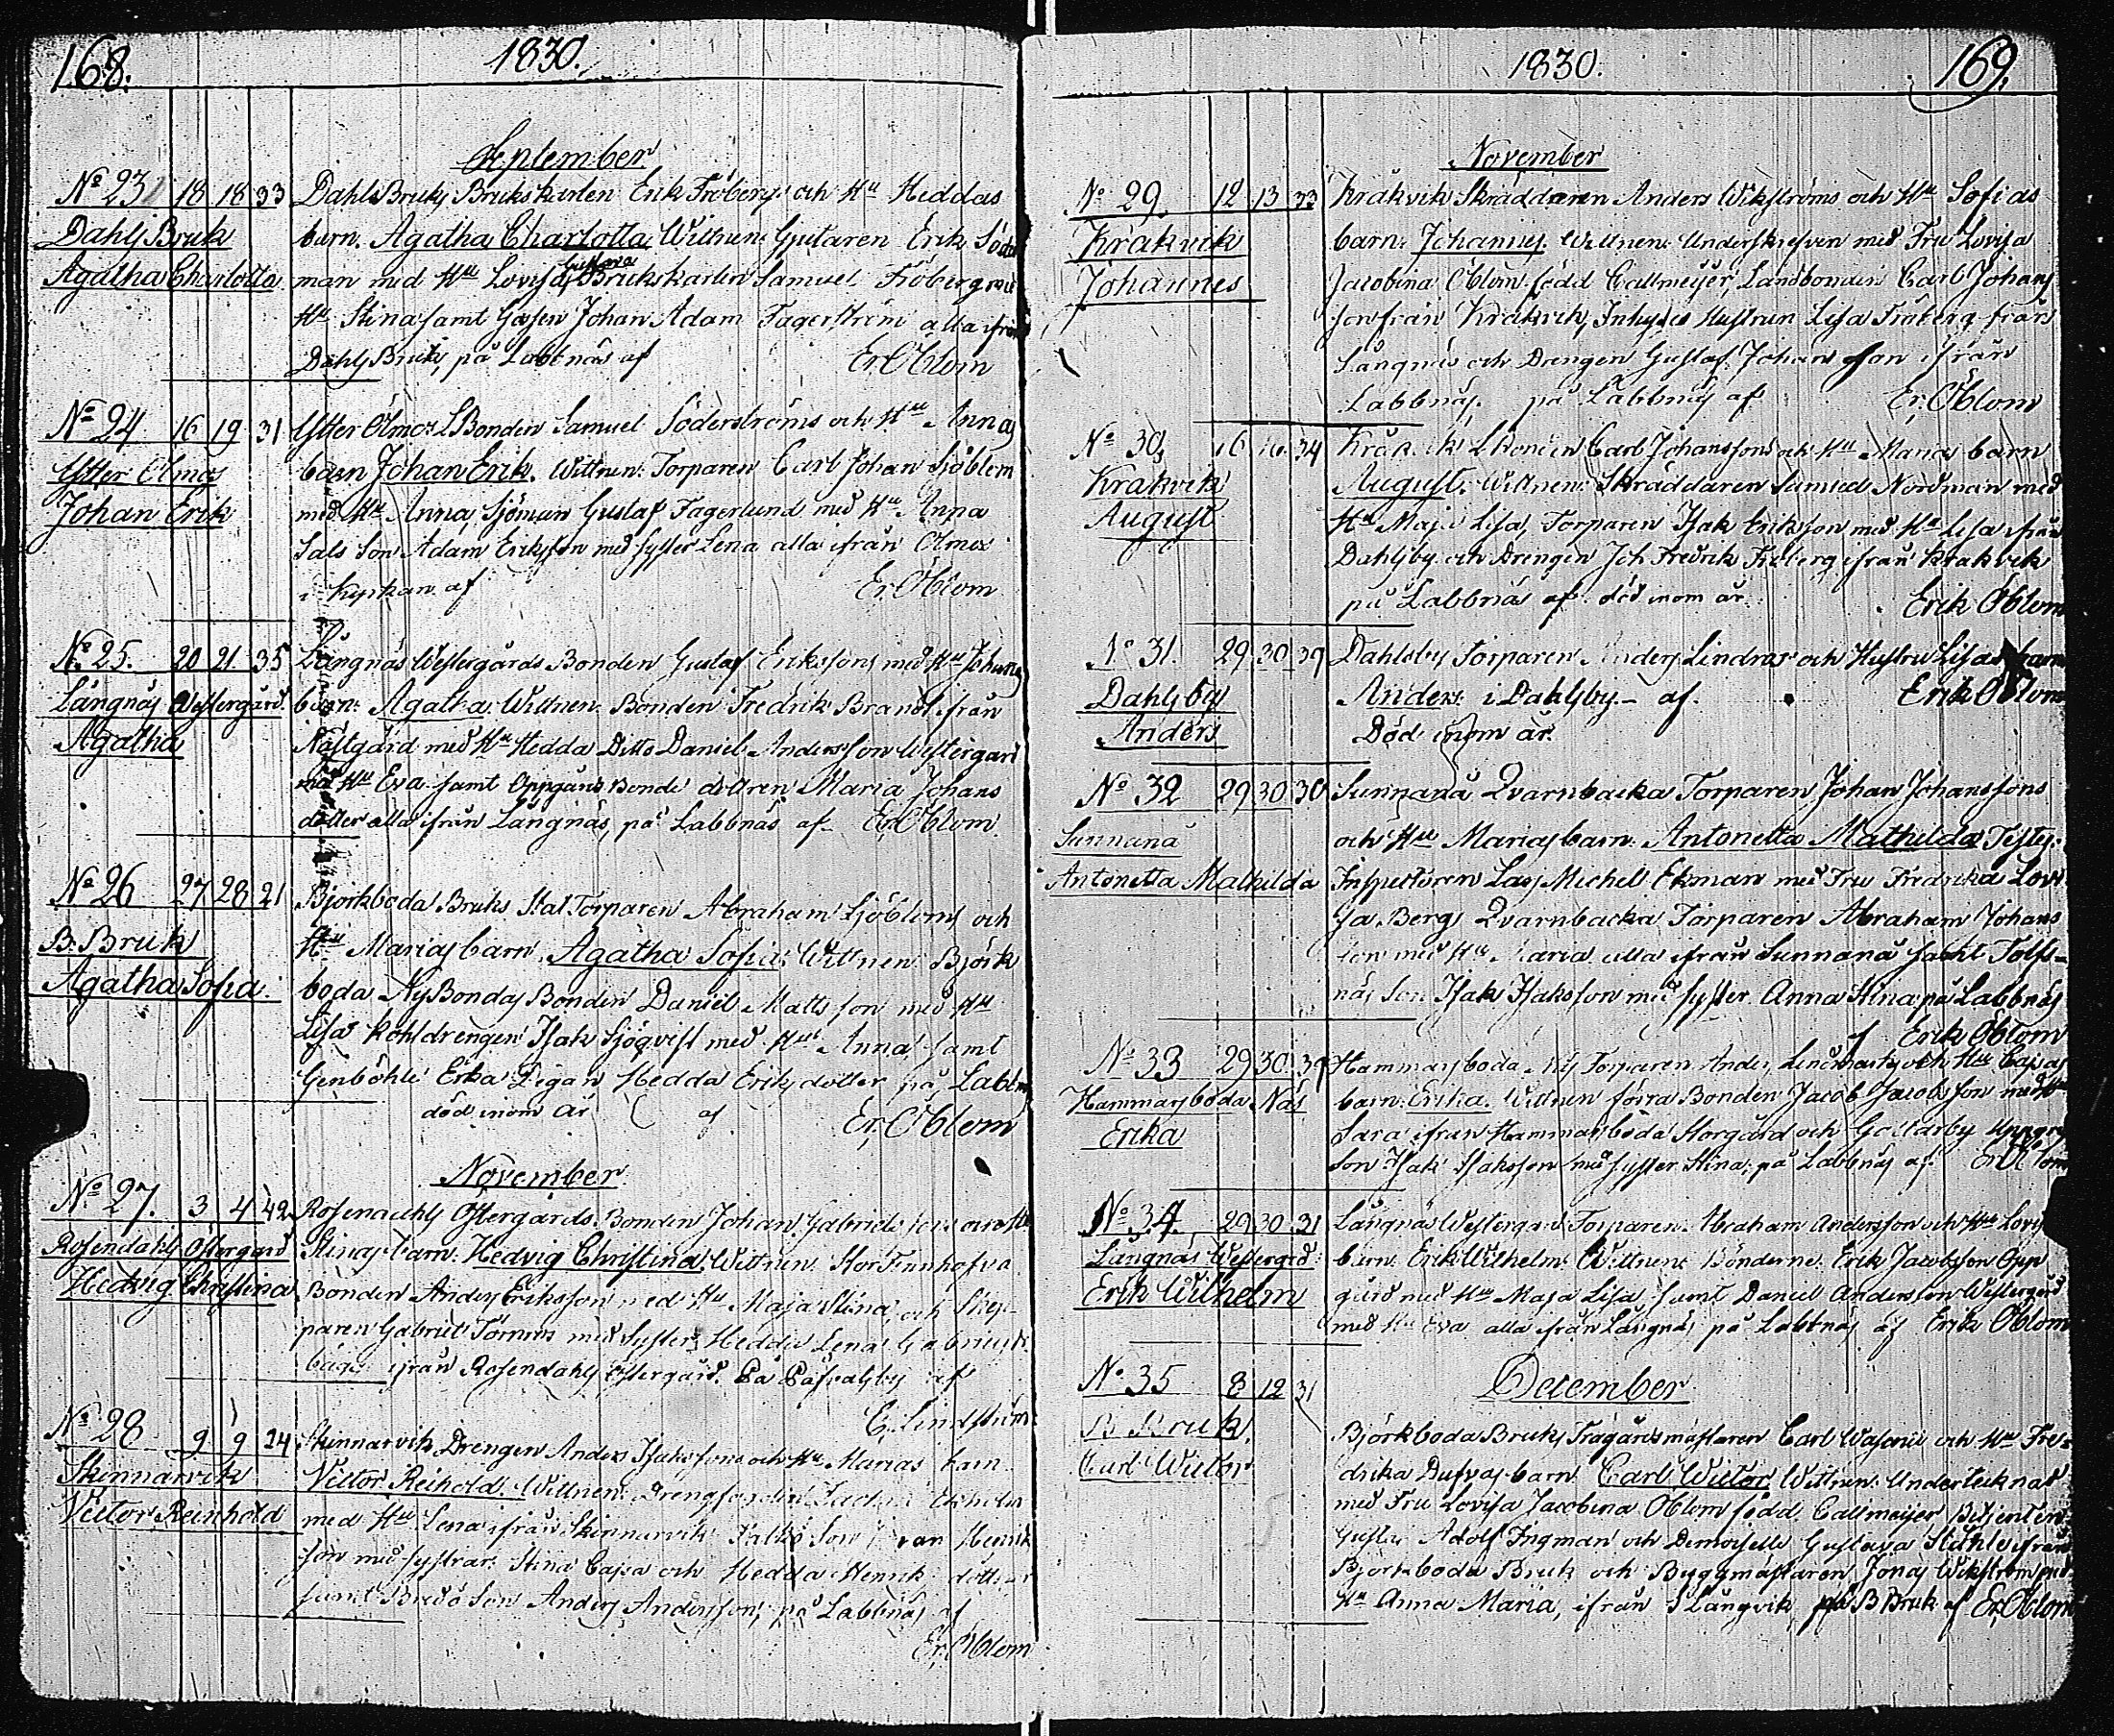 168.
1830.
September
No 23 18 18 33 Dahls Bruks Brukskarlen Erik Fröbergs och Hu Heddas
Dahls Bruk barn. Agatha Charlotta Wittnen: Gjutaren Erik Söder
Gustava
Agatha Charlotta man med Hu Lovisa, Brukskarlen Samuel Fröberg med
Hu Stina samt Gossen Johan Adam Fagerström alla ifrån
Dahls Bruk, på Labbnäs af Er. Öblom
No 24 16 19 31 Ytter Ölmos LBonden Samuel Söderströms och Hu Annas
Ytter Ölmos barn Johan Erik. Wittnen: Torparen Carl Johan Sjöblom
Johan Erik med Hu Anna, Sjöman Gustaf Fagerlund med Hu Anna
Sals Son Adam Eriksson med syster Lena alla ifrån Ölmos
i kyrkan af Er Öblom
No 25. 20 21 35 Långnäs Westergårds Bonden Gustaf Erikssons med Hu Johannas
Långnäs Westergård barn: Agatha Wittnen: Bonden Fredrik Brandt ifrån
Agatha Nästgård med Hu Hedda Ditto Daniel Andersson Westergård
med Hu Eva samt Oppgårds Bonde dottren Maria Johans
dotter alla ifrån Långnäs, på Labbnäs af Er. Öblom
No 26 27 28 21 Björkboda Bruks Stat Torparen Abraham Sjöbloms och
B. Bruk Hu Marias barn. Agatha Sofia: Wittnen: Björk
Agatha Sofia. boda NyBondas Bonden Daniel Mattsson med Hu
Lisa kohldrengen Isak Sjöqvist med Hu Anna, samt
Genböhle Erka Pigan Hedda Eriksdotter på Labbnäs
död inom år af Er. Öblom
November
No 27. 3 4 42 Rosendahls Östergårds Bonden Johan Gabrielssons och Hu
Rosendahls Östergård Stinas barn. Hedvig Christina. Wittnen: Stor Finnhofva
Hedvig Christina Bonden Anders Eriksson med Hu Maja Stina, och Skep-
paren Gabriel Törnroos med Syster Hedda Lena Gabriels
båda ifrån Rosendahls Östergård. På Påfvalsby af
E. Lindström
No 28 9 9 24 Skinnarvik Drengen Anders Isakssons och Hu Marias barn
Skinnarvik Victor Reihold. Wittnen: Drengen Ekholm
Victor Reinhold med Hu Lena ifrån Skinnarvik Son Henrik
son med systrar Stina Cajsa och Hedda Henriks döttrar
samt Bredö Son Anders Andersson, på Labbnäs af
Er. Öblom
1830.
169.
November
No 29. 12 13 33 Kråkvik Skräddaren Anders Wikströms och Hu Sofias
Kråkvik barn: Johannes. Wittnen: Underskrefven med Fru Lovisa
Johannes Jacobina Öblom född Callmeijer, Landbonden Carl Johans
son från Kråkvik, Inhyses Hustrun Lisa Fröberg från
Långnäs och Drengen Gustaf Johansson ifrån
Labbnäs. på Labbnäs af Er. Öblom
No 30. 16 16 34 Kråkvik LBonden Carl Johanssons och Hu Marias barn
Kråkvik August. Wittnen: Skräddaren Samuel Nordman med
August Hu Maja Lisa, Torparen Isak Eriksson med Hu Lisa ifrån
Dahlsby och Drengen Joh Fredrik Fröberg ifrån Kråkvik
på Labbnäs af. död inom år. Erik Öblom
No 31. 29 30 39 Dahlsby Torparen Anders Lindroos och Hustru Lisas barn
Dahlsby Anders: i Dahlsby.- af. Erik Öblom
Anders Död inom år.
No 32 29 30 30 Sunnanå Qvarnbacka Torparen Johan Johanssons
Sunnanå och Hu Marias barn: Antonetta Mathilda Testes:
Antonetta Mathilda Inspectoren Lars Michell Ekman med Fru Fredrika Lovi
sa Berg Qvarnbacka Torparen Abraham Johans
son med Hu Maria alla ifrån Sunnanå samt Tolfs-
näs Son Isak Isaksson med syster Anna Stina på Labbnäs
af Erik Öblom
No 33 29 30 39 Hammarsboda Näs Torparen Anders Lindroos och Hu Cajsas
Hammarsboda Näs barn: Erika. Wittnen förra Bonden Jacob Jacobsson med Hu
Erika Sara ifrån Hammarsboda Storgård och Galtarby Uppgrd
Son Isak Isaksson med syster Stina; på Labbnäs af. Er Öblom
No 34. 29 30 31 Långnäs Westergård Torparen Abraham Andersson och Hu Lovis
Långnäs Westergrd: barn: Erik Wilhelm. Wittnen: Bönderne Erik Jacobsson Opp
Erik Wilhelm gård med Hu Maja Lisa samt Daniel Andersson Westergård
med Hu Eva alla ifrån Långnäs på Labbnäs af Erik Öblom
No 35 8 12 31 December
B Bruk. Björkboda Bruks Trägårdsmästaren Carl Wasenii och Hu Fre=
Carl Wictor drika Dufvas barn Carl Wictor Wittnen: Undertecknad
med Fru Lovisa Jacobina Öblom född Callmeijer Betjenten
Gustav Adolf Ingman och Demoiselle Gustava Ståhle ifrån
Björkboda Bruk och Byggmästaren Jonas Wikström med
Hu Anna Maria, ifrån SLångvik, på B Bruk af Er. Öblom